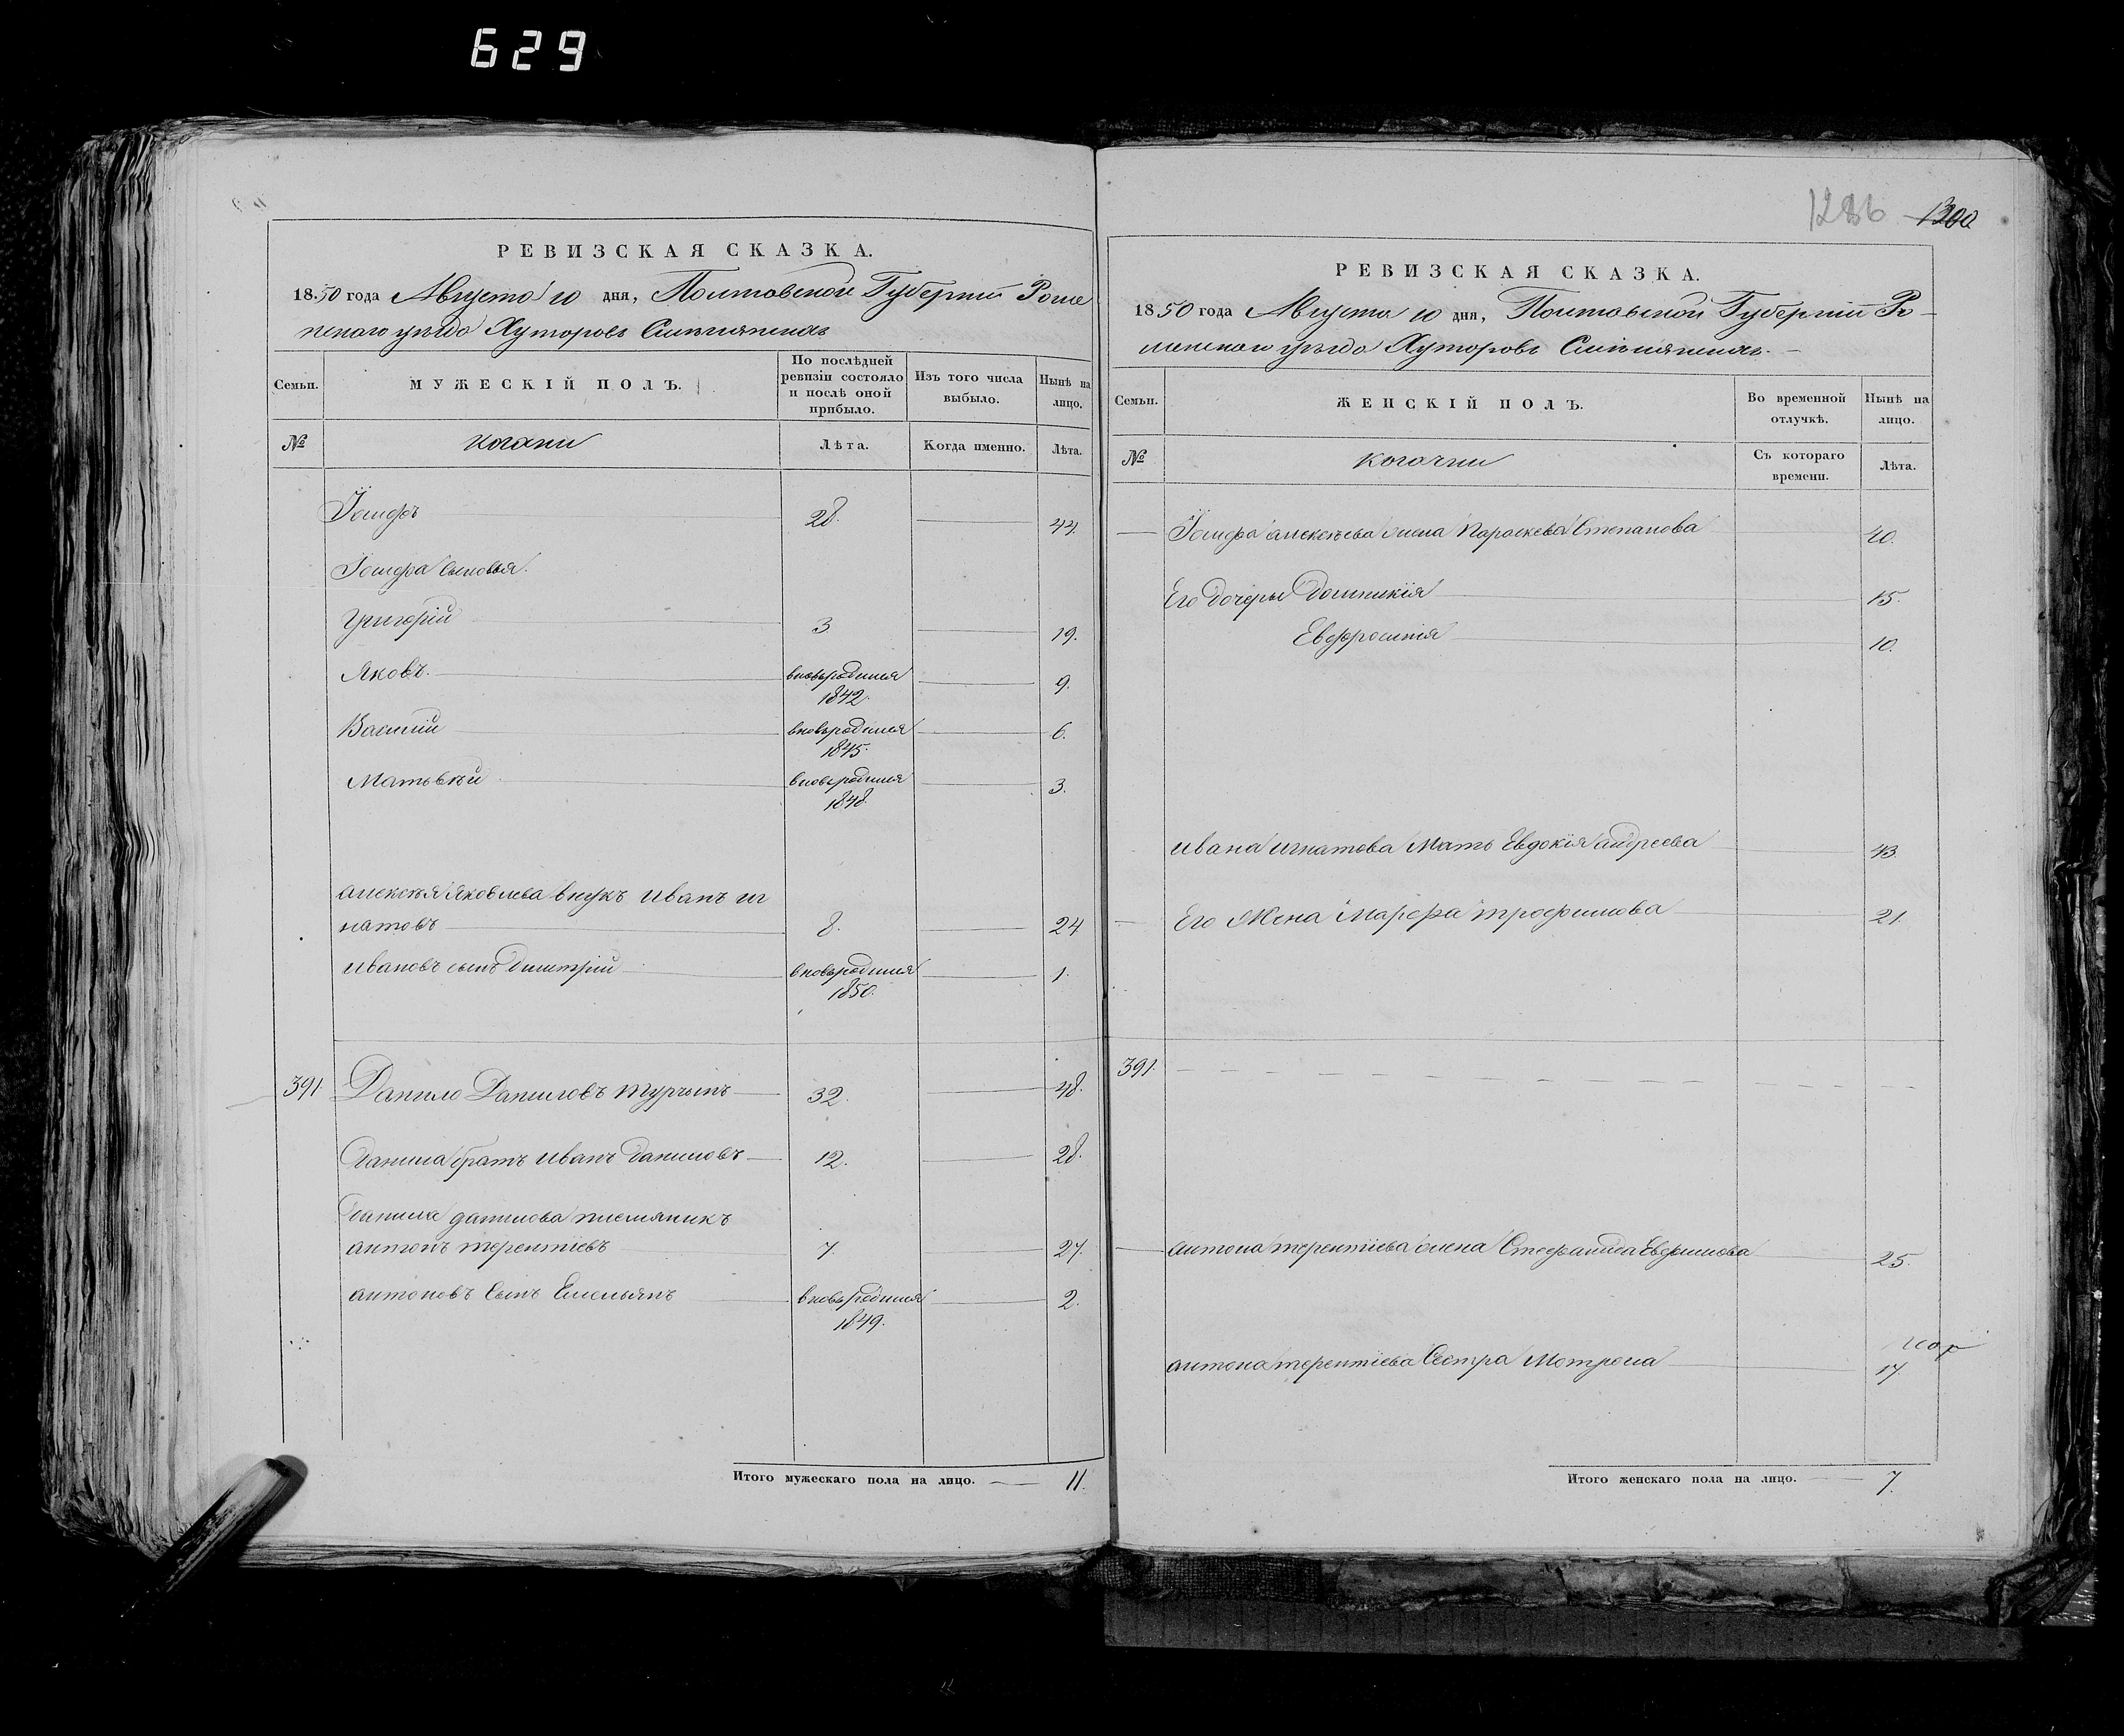 629
РЕВИЗСКАЯ СКАЗКА.
1850 года Августа 10 дня, Полтавской Губернии Роме
нскаго уезда Хуторовъ
Семьи.
МУЖЕСКІЙ ПОЛЪ.
По послѣдней ревизіи состояло и послѣ оной прибыло.
Изъ того числа выбыло.
Нынѣ на лицо.
№
козаки
Лѣта.
Когда именно.
Лѣта.
Іосифъ 28. 44.
Іосифа Сыновья.
Григорій 3 19.
Яковъ. вновьродился 1842. 9.
Василій вновьродился 1845. 6.
Матьвѣй вновьродился 1848. 3.
алексѣя Яковлева внукъ иванъ иг
натовъ 8. 24
ивановъ сынъ Димитрій вновьродился 1850. 1.
391 Данило Даниловъ Турчинъ 32. 48.
Данила братъ иванъ Даниловъ 12. 28.
Данила данилова племяникъ
антонъ терентіевъ 7 27.
антоновъ Сынъ Емельянъ вновьродился 1849. 2.
Итого мужескаго пола на лицо. 11.
1286 1300
РЕВИЗСКАЯ СКАЗКА.
1850 года Августа 10 дня, Полтавской Губерніи Ро-
менскаго уезда Хуторовъ
Семьи.
ЖЕНСКІЙ ПОЛЪ.
Во временной отлучкѣ.
Нынѣ на лицо.
№
козачки
Съ котораго времени.
Лѣта.
Іосифа алексѣева жена Параскева Степанова 40.
Его дочеры Домникія 15.
Евфросинія 10.
ивана игнатова Мать Евдокія андреева 43.
Его Жена Марфа трофимова 21.
391.
антона терентіева жена Стефанида Евфимова 25.
антона терентіева Сестра Мотрона 17.
Итого женскаго пола на лицо. 7.